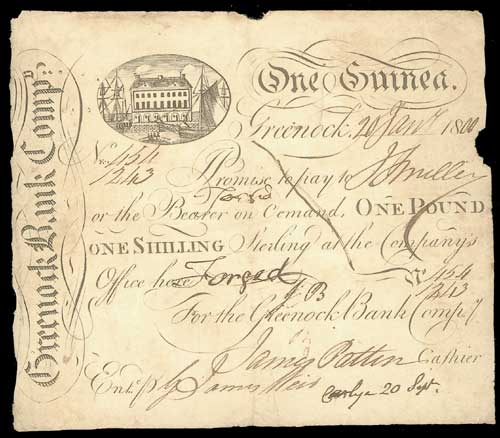 Greenock Bank Compy.
One Guinea.
Greenock, 20 Jany 1800
No. 454
1243
I Promise to pay to
Forged
or the Bearer on Demand, ONE POUND
ONE SHILLING Sterling at the Company's
Office here Forged
No. 454
1243
J.B
For the Greenock Bank Compy
James Pattin Cashier
Entd. p James Weir
20 Sept.